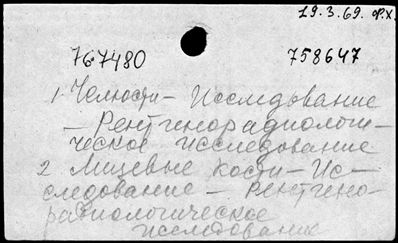 19.3.69. Ф.Х.
767480 758647
1. Челюсти — Исследование
— Рентгенорадиологи-
ческое исследование
2 Лицевые кости — Ис-
следование — Рентгено-
радиологическое
исследование